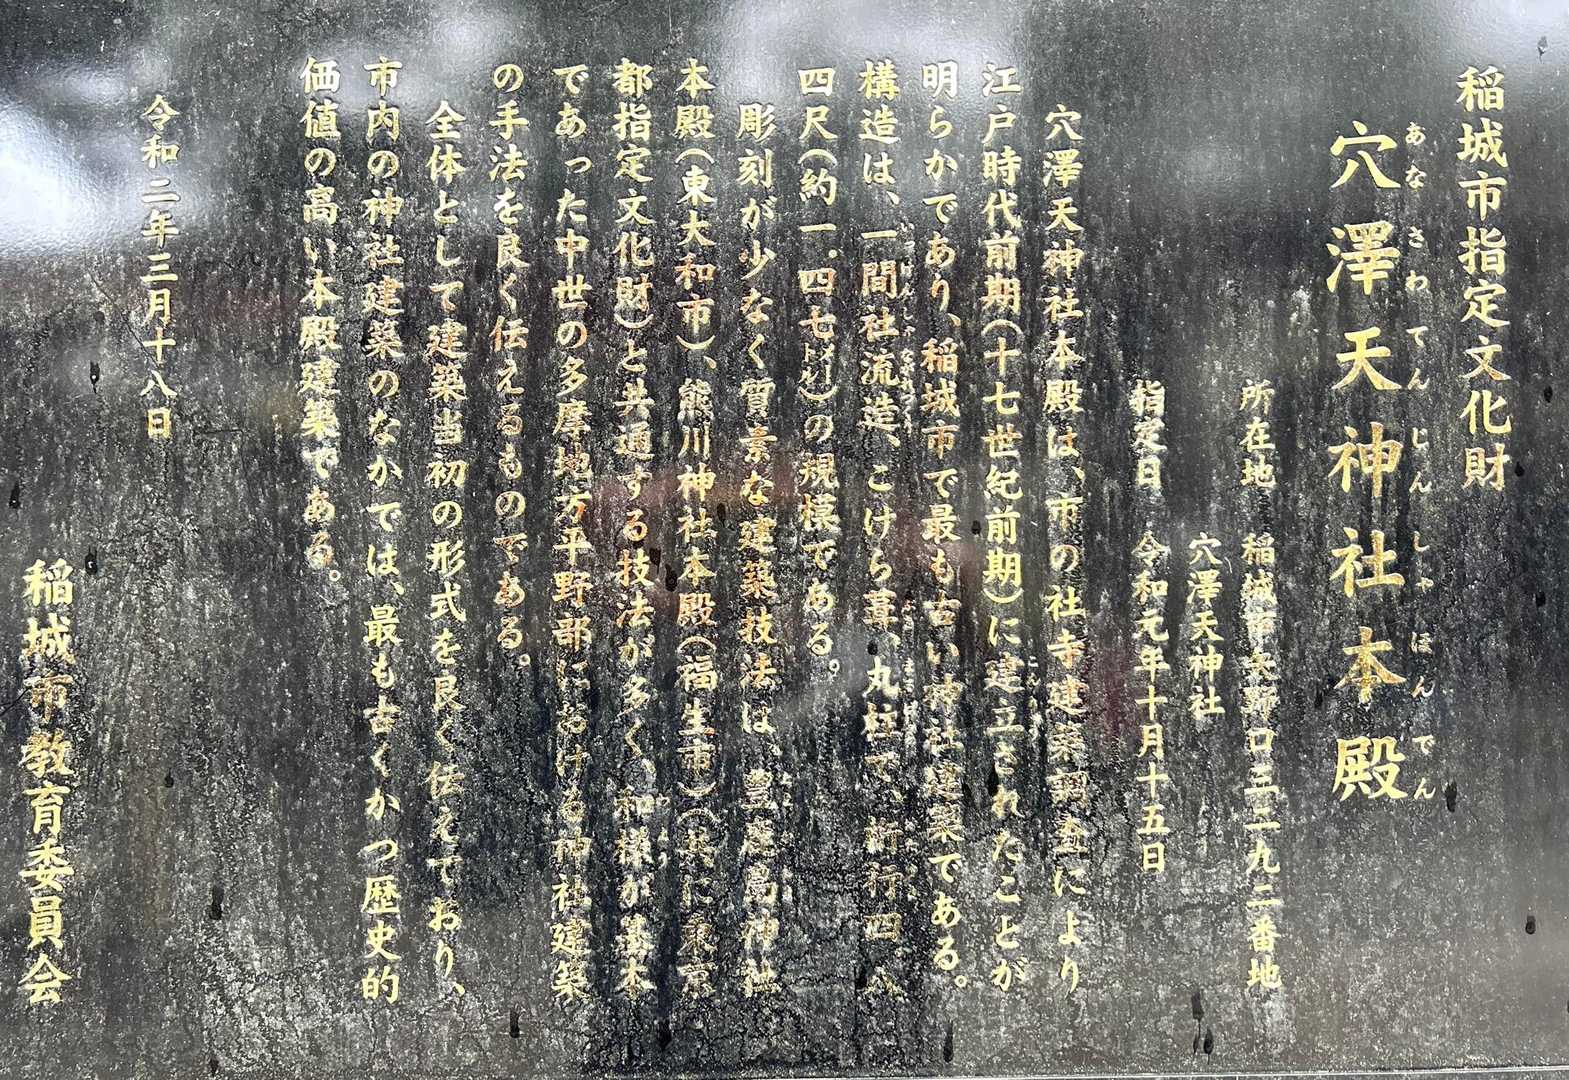 稲城市指定文化財
あなさわてんじんしゃほんでん
穴澤天神社本殿
所在地　稲城市矢野口三二九二番地
穴澤天神社
指定日　令和元年十月十五日
穴澤天神社本殿は、市の社寺建築調査により
江戸時代前期(十七世紀前期)に建立されたことが
明らかであり、稲城市で最も古い神社建築である。
構造は、一間社流造、こけら葺、丸柱で、桁行四.八
四尺(約一.四七メートル)の規模である。
彫刻が少なく質素な建築技法は、豊鹿島神社
本殿(東大和市)、熊川神社本殿(福生市)(共に東京
都指定文化財)と共通する技法が多く、和様が基本
であった中世の多摩地方平野部における神社建築
の手法を良く伝えるものである。
全体として建築当初の形式を良く伝えており、
市内の神社建築のなかでは、最も古くかつ歴史的
価値の高い本殿建築である。
令和二年三月十八日
稲城市教育委員会